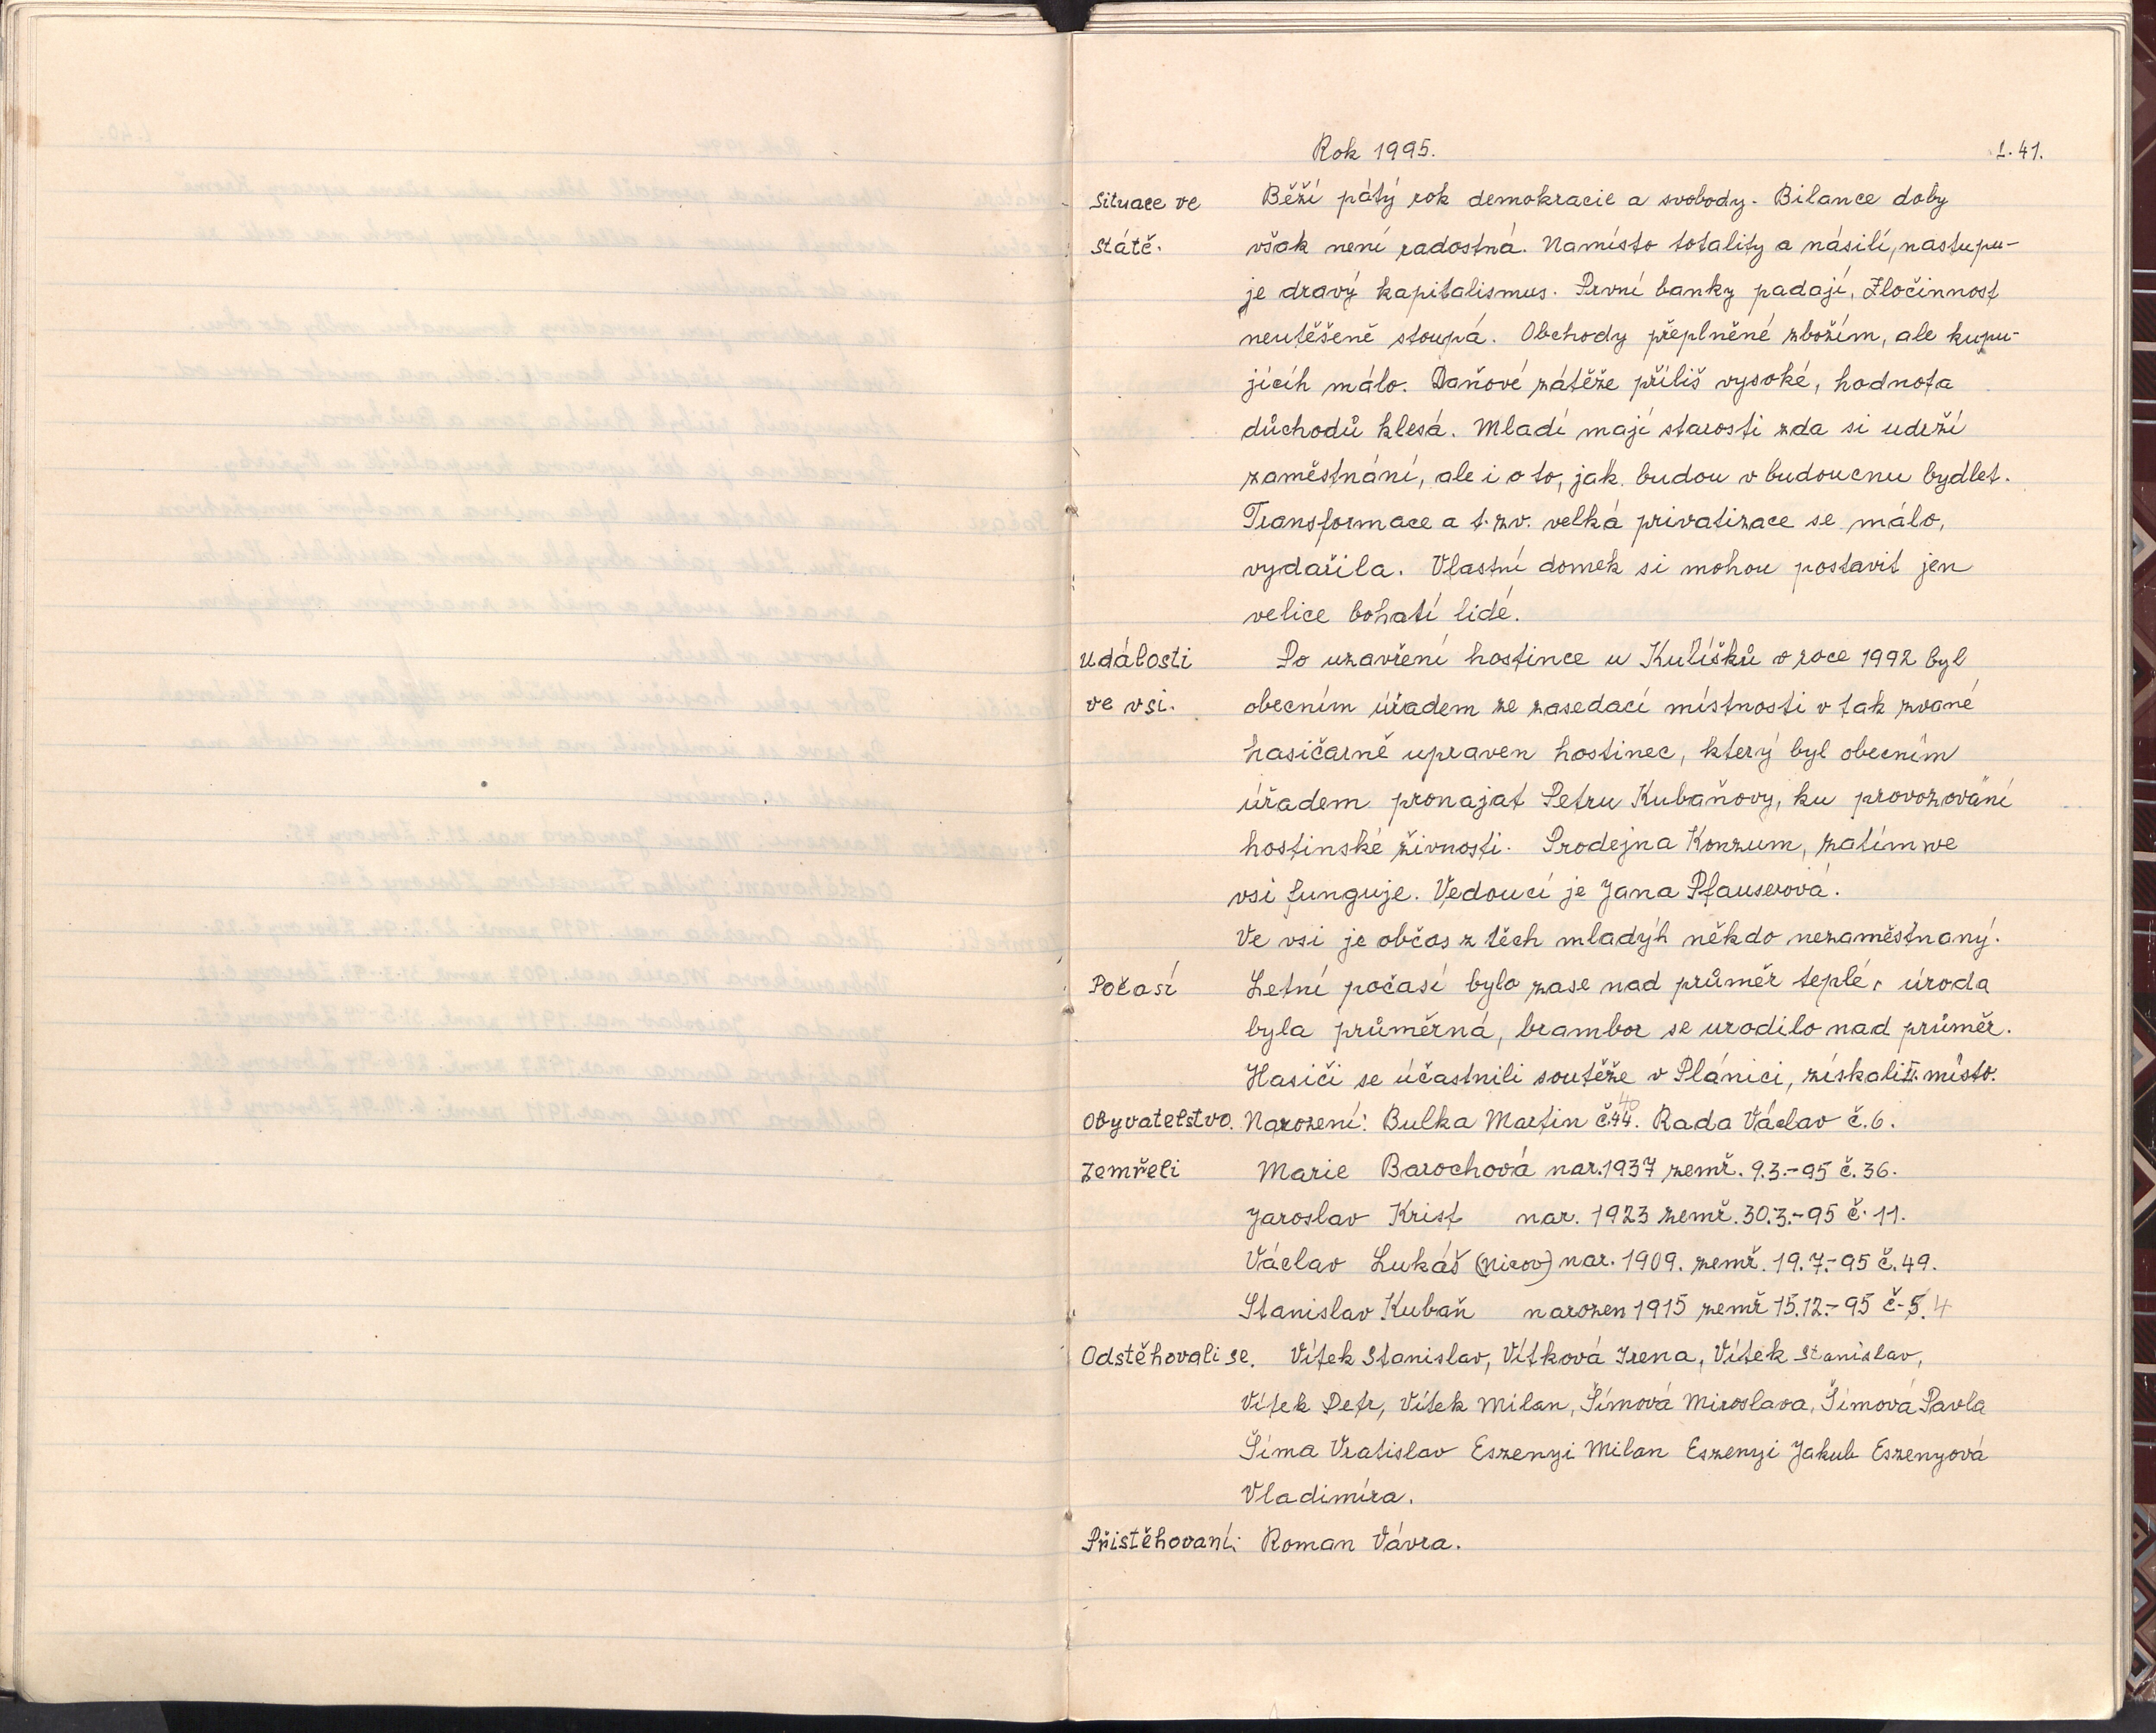 Rok 1995. L. 41.
Situace ve Běží pátý rok demokracie a svobody. Bilance doby
Státě. však není radostná. Namísto totality a násilí, nastupu-
je dravý kapitalismus. První banky padají, Zločinnost
neutěšeně stoupá. Obchody přeplněné zbožím, ale kupu-
jícíh málo. Daňové zátěže příliš vysoké, hodnota
důchodů klesá. Mladí mají starosti zda si udrží
zaměstnání, ale i o to, jak budou v budoucnu bydlet.
Transformace a t.zv. velká privatizace se málo,
vydařila. Vlastní domek si mohou postavit jen
velice bohatí lidé.
Události Po uzavření hostince u Kulíšků v roce 1992 byl
ve vsi. obecním úřadem ze zasedací místnosti v tak zvané
hasičarně upraven hostinec, který byl obecním
úřadem pronajat Petru Kubaňovy, ku provozování
hostinské živnosti. Prodejna Konzum, zatím ve
vsi funguje. Vedoucí je Jana Pfauserová.
Ve vsi je občas z těch mladýh někdo nezaměstnaný.
Počasí Letní počasí bylo zase nad průměr teplé, úroda
byla průměrná, brambor se urodilo nad průměr.
Hasiči se účastnili soutěže v Plánici, získali II. místo.
Obyvatelstvo. Narození: Bulka Martin č.44. 40 Rada Václav č.6.
Zemřeli Marie Barochová nar.1937 zemř. 9.3.-95 č.36.
Jaroslav Krist nar. 1923 zemř. 30.3.-95 č. 11.
Václav Lukáš (Nicov) nar. 1909. zemř. 19.7.-95 č.49.
Stanislav Kubaň narozen 1915 zemř 15.12.-95 č-5. 4
Odstěhovali se. Vítek Stanislav, Vítková Irena, Vítek Stanislav,
Vítek Petr, Vítek Milan, Šímová Miroslava, Šímová Pavla
Šíma Vratislav Eszenyi Milan Eszenyi Jakub Eszenyová
Vladimíra.
Přistěhovaní: Roman Vávra.